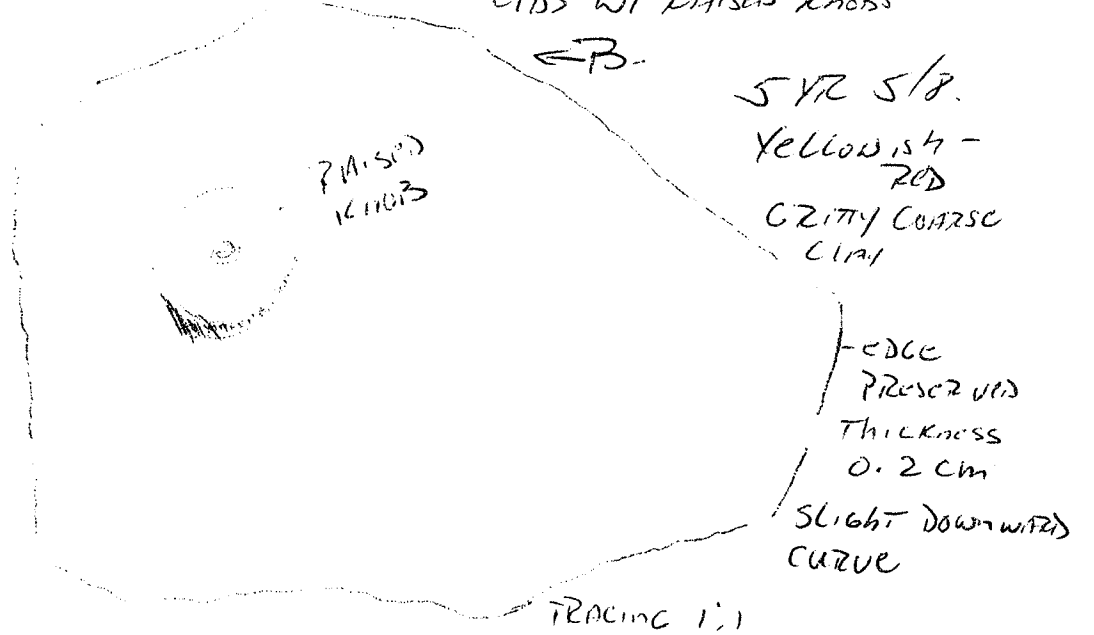 LIDS W/ RAISED KNOBS
←B.
5 YR 5/8.
Yellowish-
RED
GRITTY COARSE
CLAY
RAISED
KNOB
-EDGE
PRESERVED
Thickness
0.2 cm
SLIGHT DOWNWARD
CURVE
TRACING 1:1